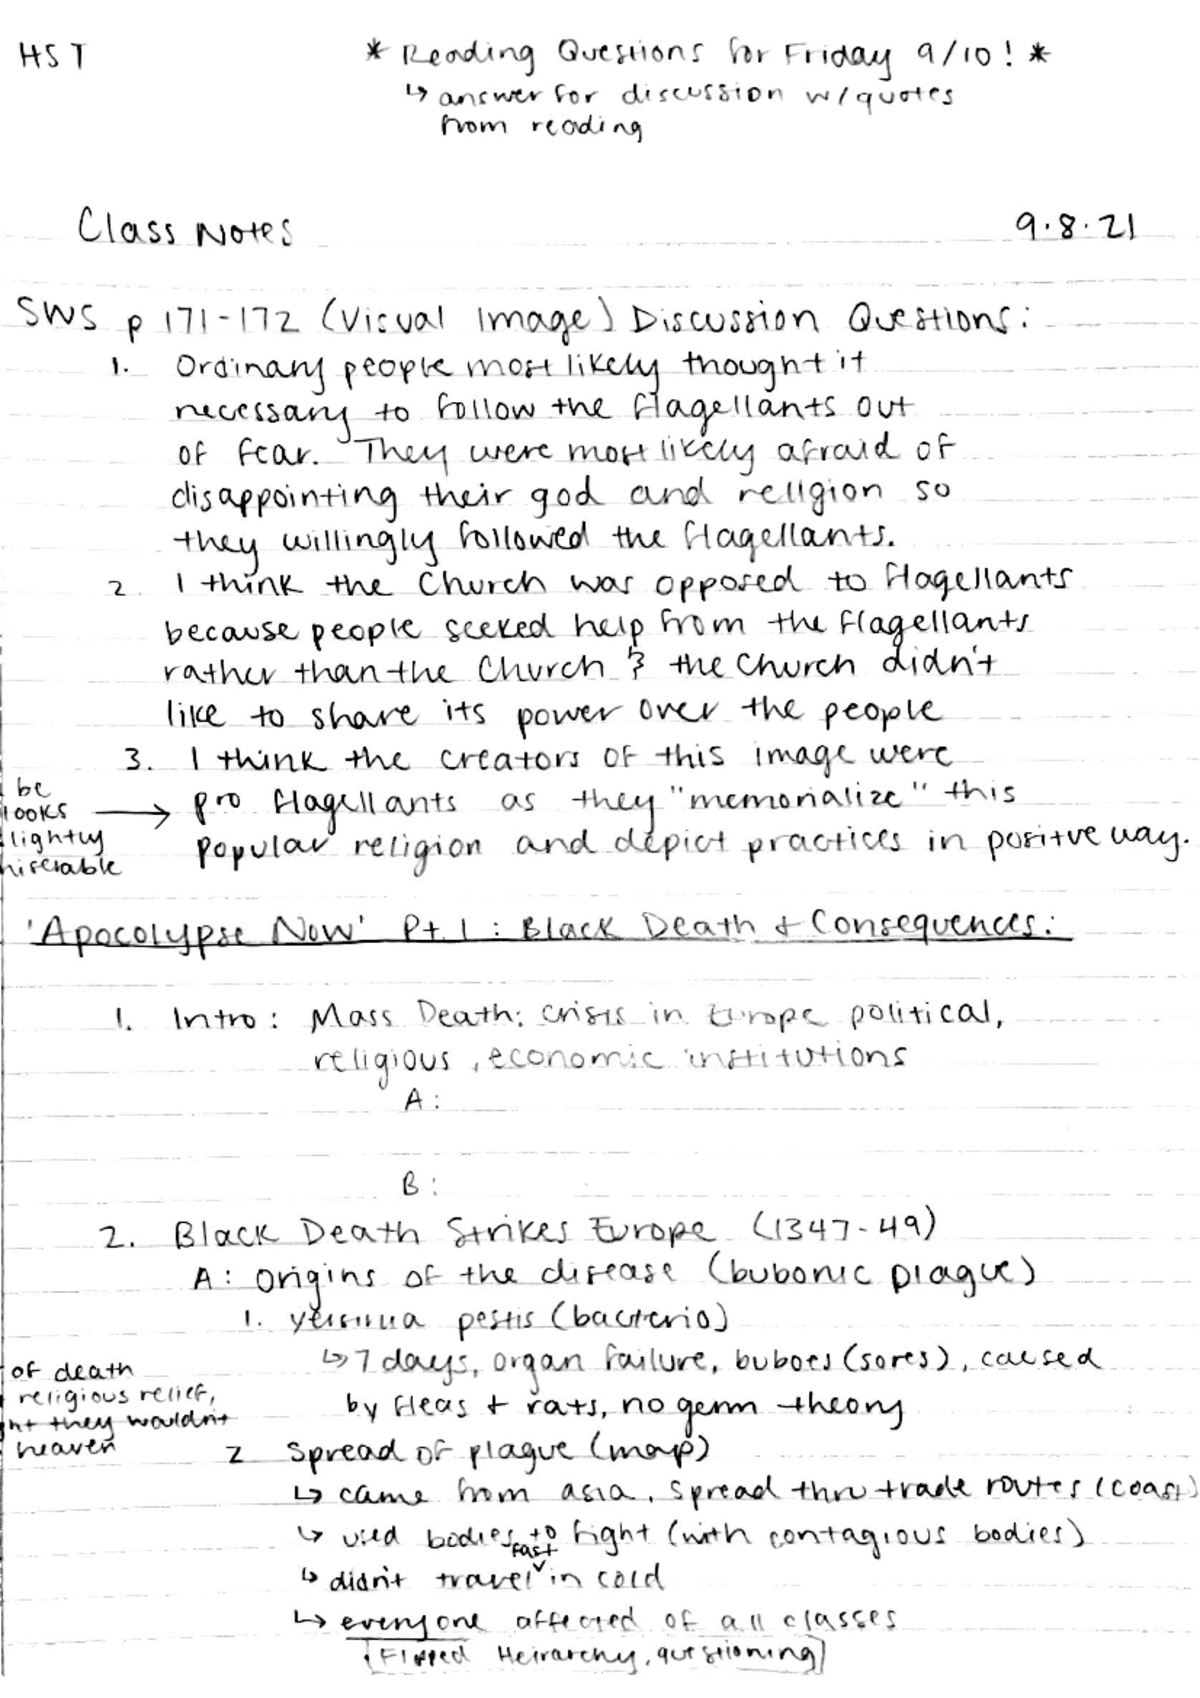 HST
* Reading Questions for Friday 9/10! *
↳ answer for discussion w/quotes
from reading
Class Notes 9.8.21
SWS p 171-172 (Visual Image) Discussion Questions:
1. Ordinary people most likely thought it
necessary to follow the flagellants out
of fear. They were most likely afraid of
disappointing their god and religion so
they willingly followed the flagellants.
2. I think the Church was opposed to flagellants
because people seeked help from the flagellants
rather than the Church & the Church didn't
like to share its power over the people
3. I think the creators of this image were
be
looks → pro flagellants as they "memorialize" this
lightly
popular religion and depict practices in positve way.
miserable
'Apocolypse Now' Pt. 1: Black Death & Consequences:
1. Intro: Mass Death: crisis in Europe political,
religious, economic institutions
A:
B:
2. Black Death Strikes Europe (1347-49)
A: Origins of the disease (bubonic plague)
1. yersinia pestis (bacteria)
↳ 7 days, organ failure, buboes (sores), caused
of death
religious relief,
by fleas + rats, no germ theory
they wouldn't
heaven
2 Spread of plague (map)
↳ came from asia, spread thru trade routes (coast)
↳ used bodies to fight (with contagious bodies)
↳ didn't travel fast in cold
↳ everyone affected of all classes
[Flipped Heirarchy, questioning]